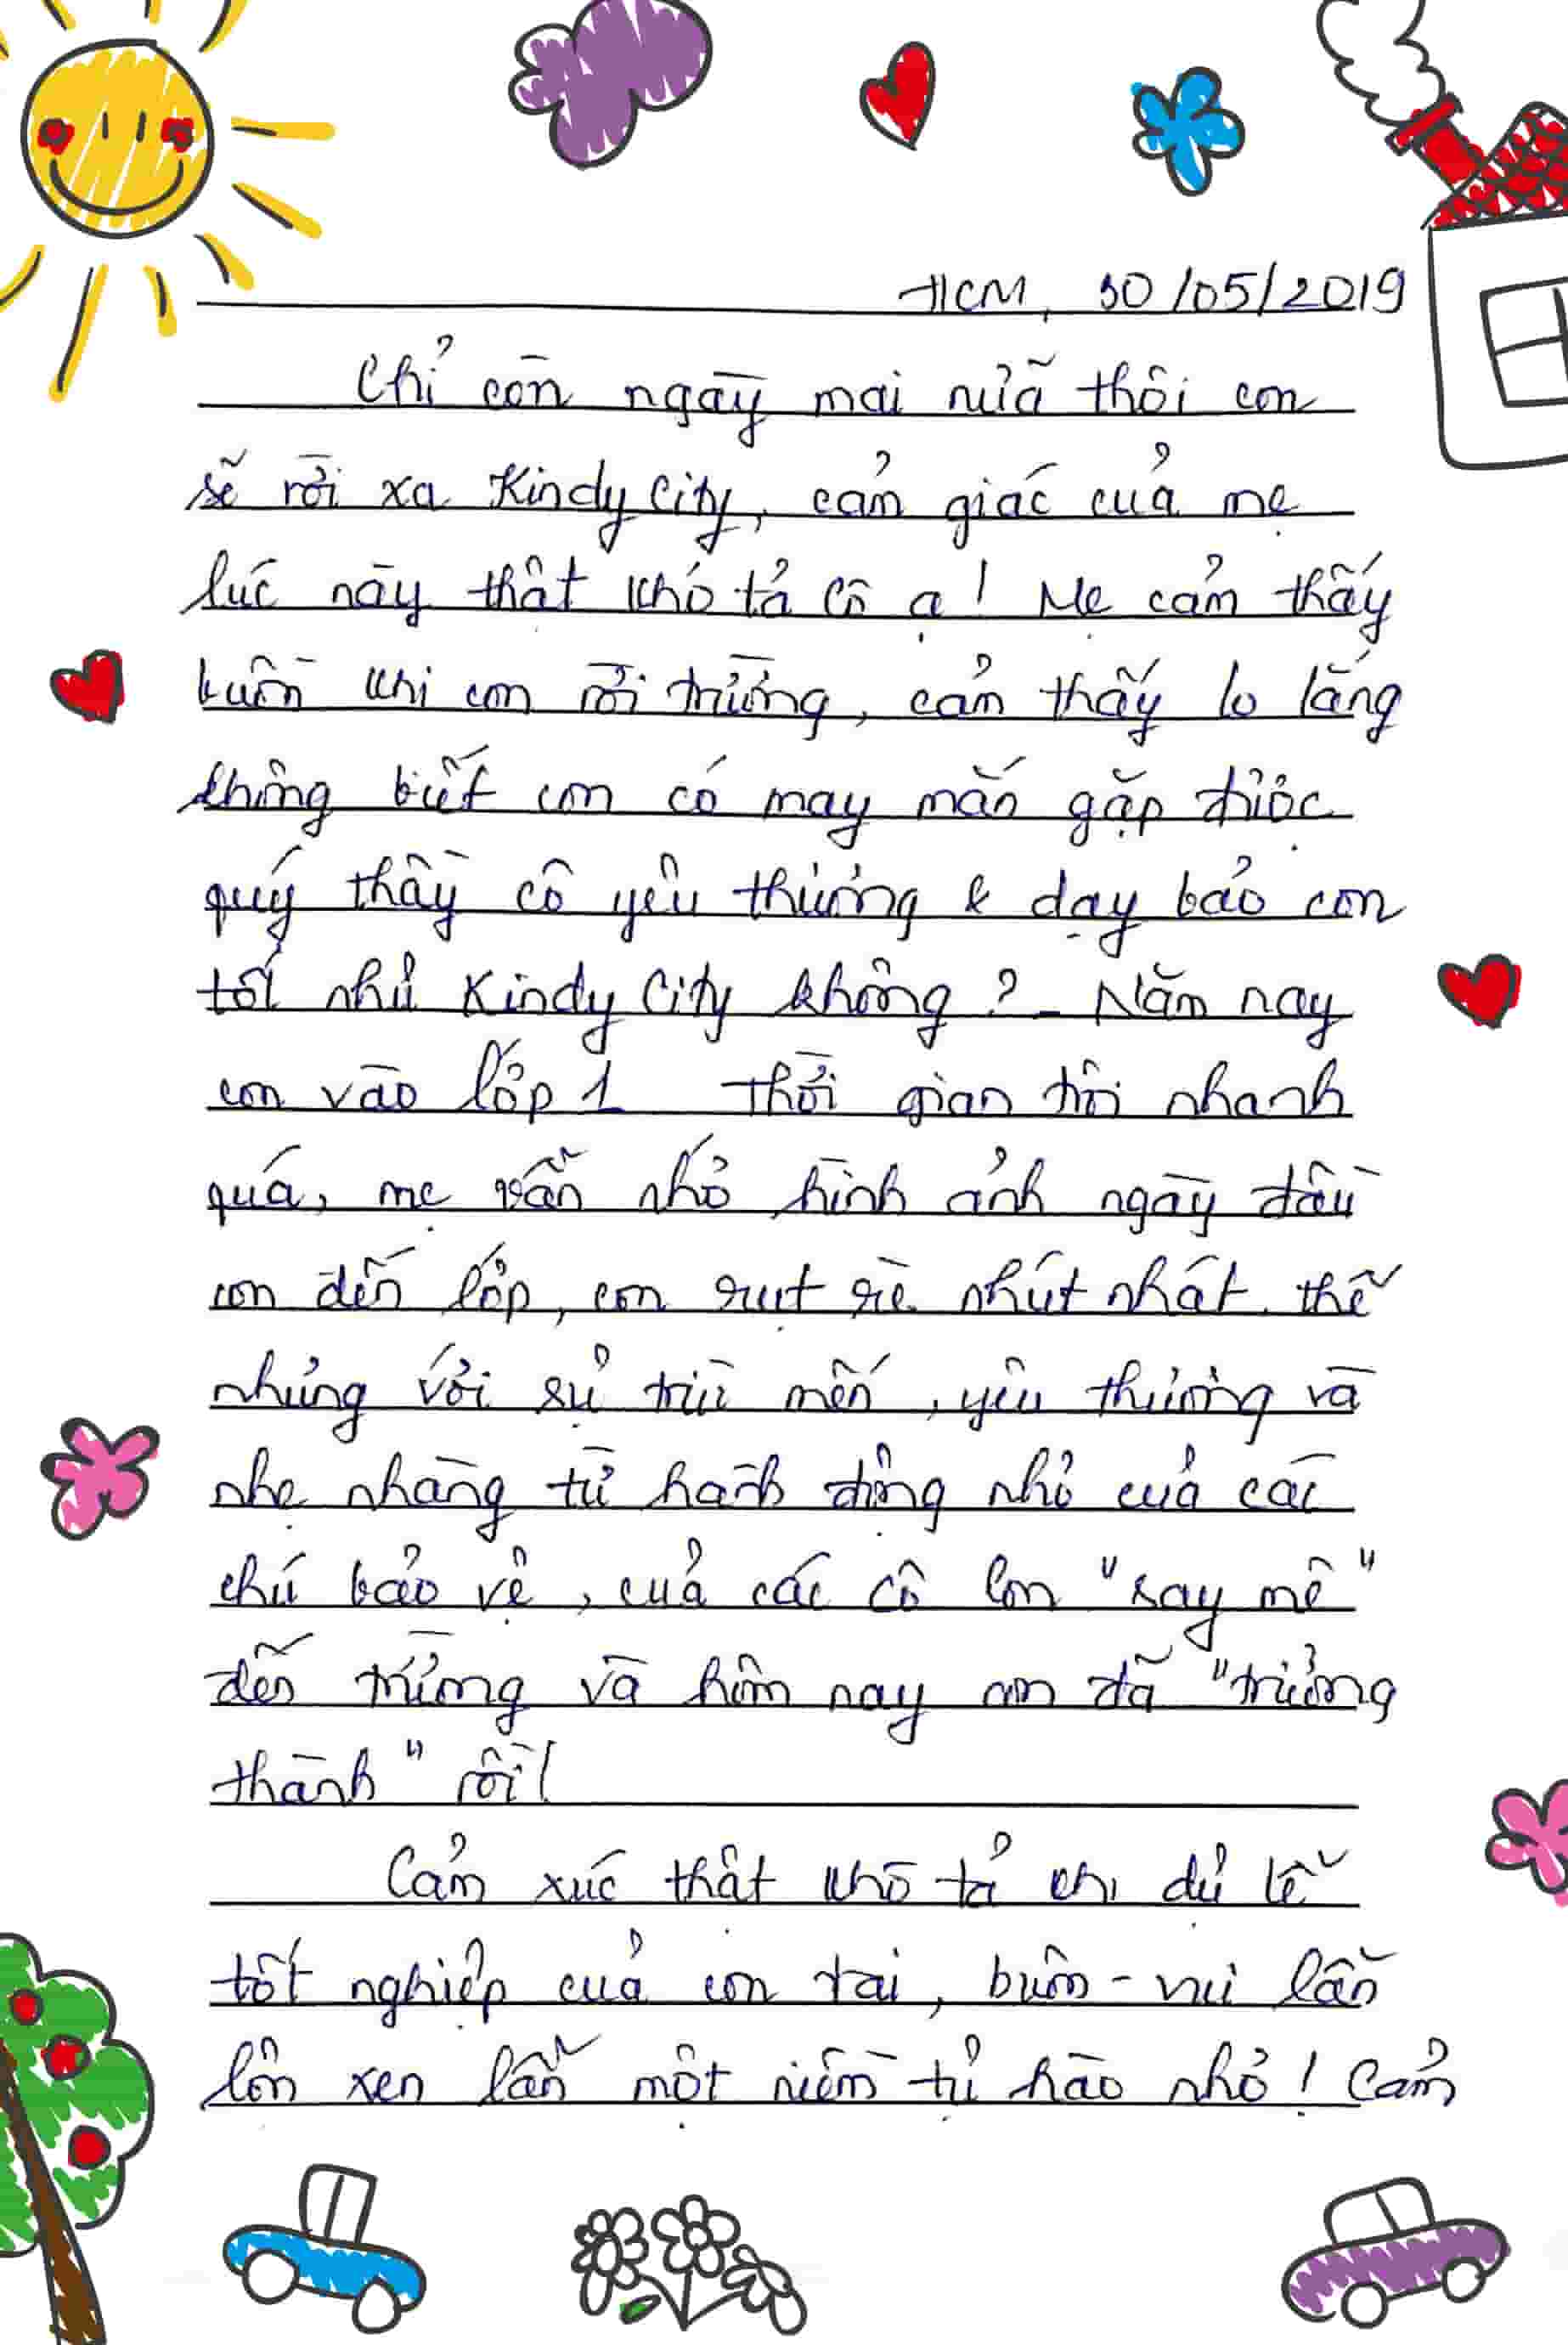 HCM, 30/05/2019
Chỉ còn ngày mai nữa thôi con
sẽ rời xa Kindy City, cảm giác của mẹ
lúc này thật khó tả cô ạ! Mẹ cảm thấy
buồn khi con rời trường, cảm thấy lo lắng
không biết con có may mắn gặp được
quý thầy cô yêu thương & dạy bảo con
tốt như Kindy City không? Năm nay
con vào lớp 1 Thời gian trôi nhanh
quá, mẹ vẫn nhớ hình ảnh ngày đầu
con đến lớp, con rụt rè nhút nhát. thế
nhưng với sự trìu mến, yêu thương và
nhẹ nhàng từ hành động nhỏ của các
chú bảo vệ, của các cô con "say mê"
đến trường và hôm nay con đã "trưởng
thành" rồi!
Cảm xúc thật khó tả khi dự lễ
tốt nghiệp của con trai, buồn - vui lẫn
lộn xen lẫn một niềm tự hào nhỏ! Cảm